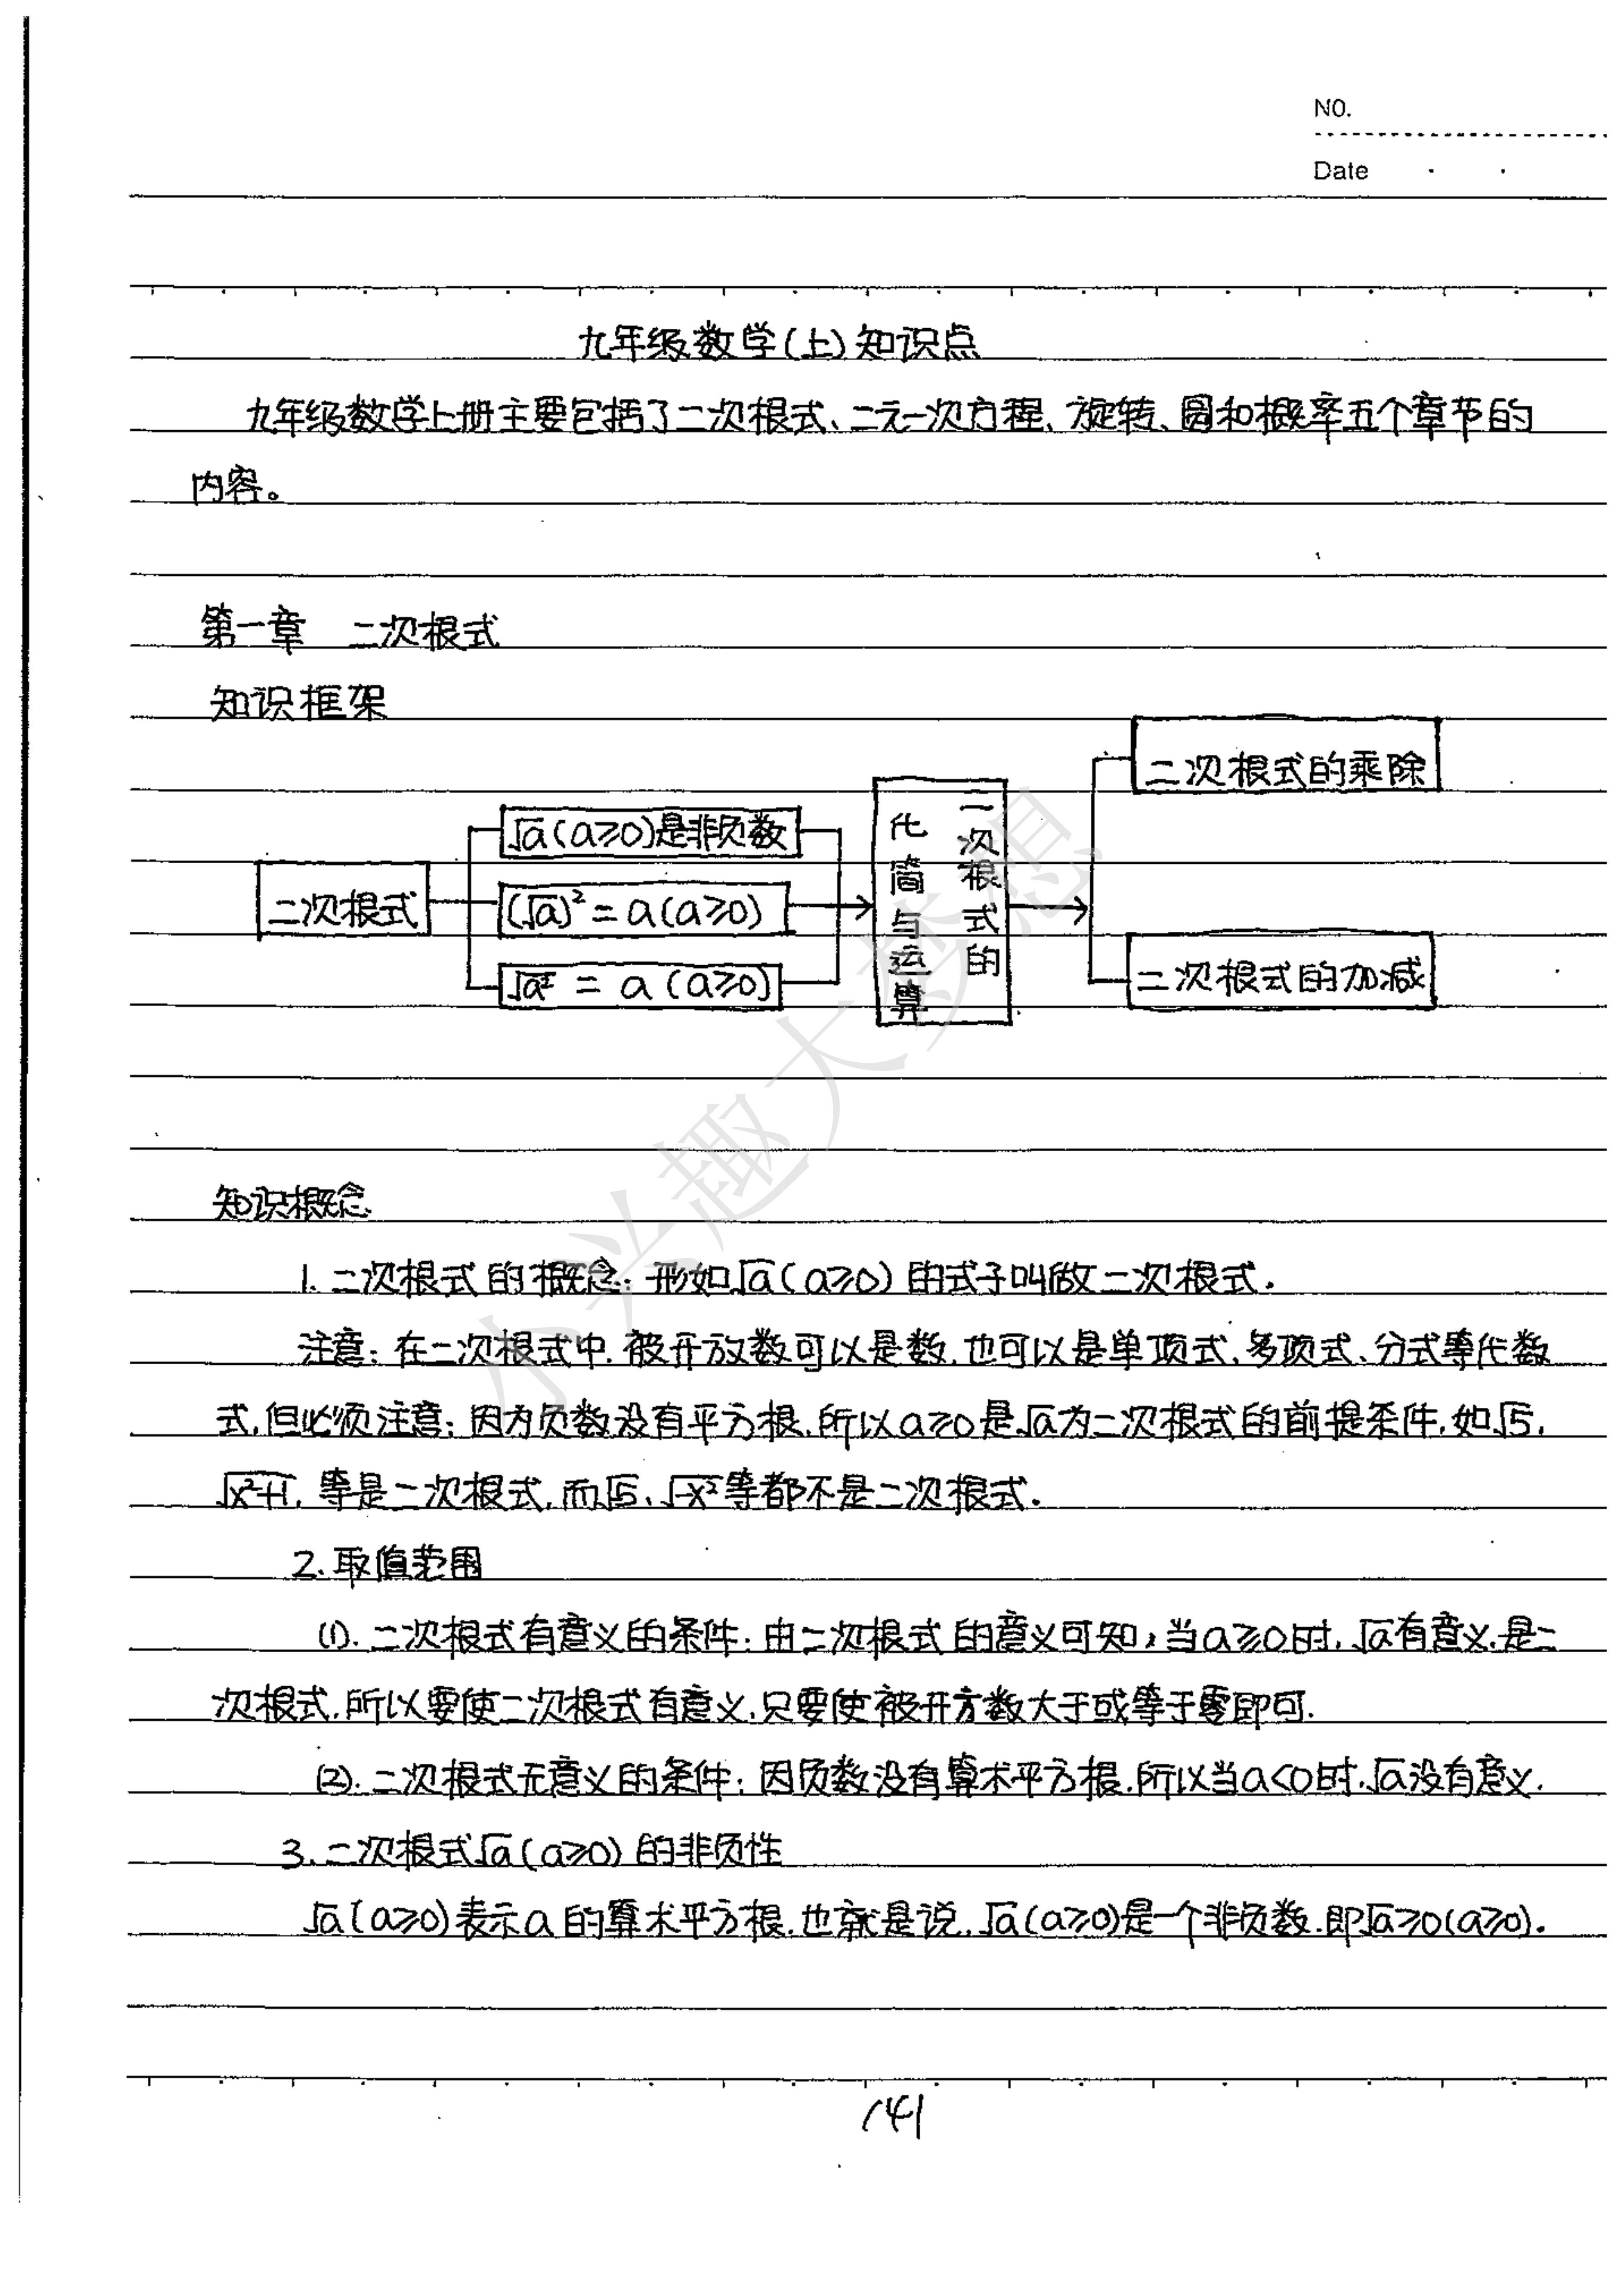 NO.
Date
九年级数学(上)知识点
九年级数学上册主要包括了二次根式、二元一次方程、旋转、圆和概率五个章节的
内容。
第一章 二次根式
知识框架
二次根式
√a(a≥0)是非负数
(√a)²=a(a≥0)
√a²=a(a≥0)
二次根式的
化简与运算
二次根式的乘除
二次根式的加减
知识概念
1.二次根式的概念:形如√a(a≥0)的式子叫做二次根式.
注意:在二次根式中.被开放数可以是数.也可以是单项式、多项式、分式等代数
式.但必须注意:因为负数没有平方根.所以a≥0是√a为二次根式的前提条件.如√5,
√x²+1,等是二次根式,而√5、√-x²等都不是二次根式.
2.取值范围
(1).二次根式有意义的条件:由二次根式的意义可知,当a≥0时,√a有意义.是二
次根式.所以要使二次根式有意义.只要使被开方数大于或等于零即可.
(2).二次根式无意义的条件:因负数没有算术平方根.所以当a<0时.√a没有意义.
3.二次根式√a(a≥0)的非负性
√a(a≥0)表示a的算术平方根.也就是说,√a(a≥0)是一个非负数.即√a≥0(a≥0).
141
小兴趣大梦想